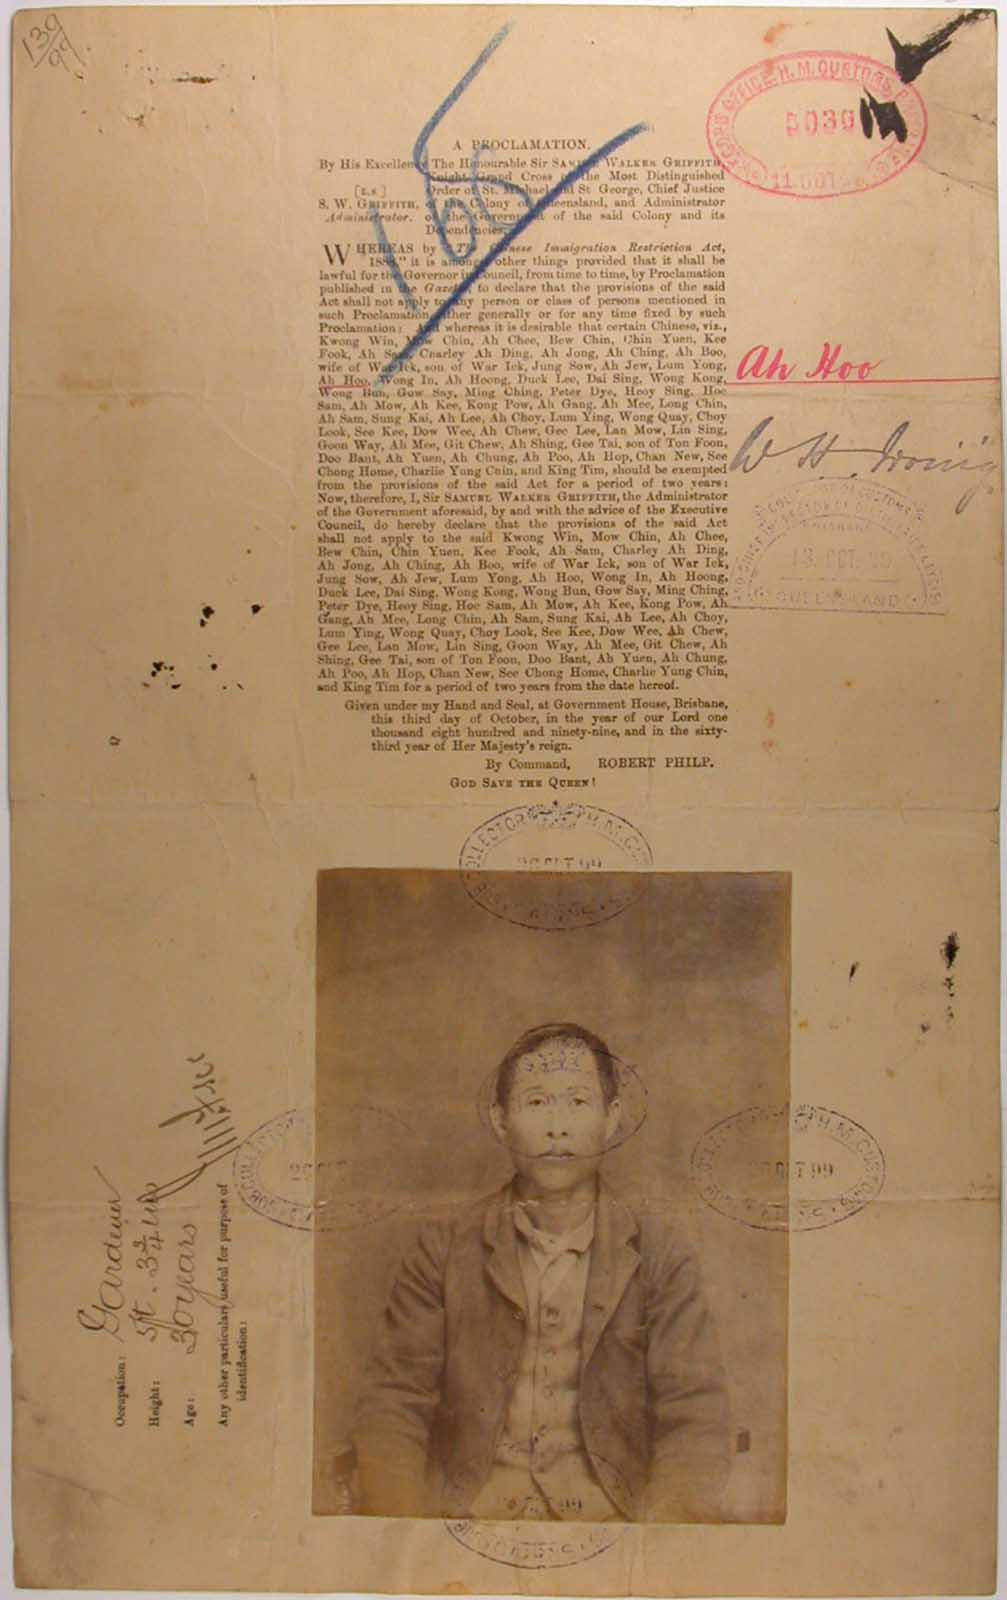 139/99.
RECORD OFFICE, H.M. CUSTOMS
5039
11. OCT
165
A PROCLAMATION.
By His Excellency The Honourable Sir SAMUEL WALKER GRIFFITH,
Knight Grand Cross of the Most Distinguished
[L.S] Order of St. Michael and St George, Chief Justice
S. W. GRIFFITH, of the Colony of Queensland, and Administrator
Administrator. of the Government of the said Colony and its
Dependencies.
WHEREAS by "The Chinese Immigration Restriction Act,
it is amongst other things provided that it shall be
lawful for the Governor in Council, from time to time, by Proclamation
published in the Gazette, to declare that the provisions of the said
Act shall not apply to any person or class of persons mentioned in
such Proclamation, either generally or for any time fixed by such
Proclamation: And whereas it is desirable that certain Chinese, viz.,
Kwong Win, Mow Chin, Ah Chee, Bew Chin, Chin Yuen, Kee
Fook, Ah Sam, Charley Ah Ding, Ah Jong, Ah Ching, Ah Boo,
wife of War Ick, son of War Ick, Jung Sow, Ah Jew, Lum Yong,
Ah Hoo, Wong In, Ah Hoong, Duck Lee, Dai Sing, Wong Kong,
Wong Bun, Gow Say, Ming Ching, Peter Dye, Heoy Sing, Hoc
Sam, Ah Mow, Ah Kee, Kong Pow, Ah Gang, Ah Mee, Long Chin,
Ah Sam, Sung Kai, Ah Lee, Ah Choy, Lum Ying, Wong Quay, Choy
Look, See Kee, Dow Wee, Ah Chew, Gee Lee, Lan Mow, Lin Sing,
Goon Way, Ah Mee, Git Chew, Ah Shing, Gee Tai, son of Ton Foon,
Doo Bant, Ah Yuen, Ah Chung, Ah Poo, Ah Hop, Chan New, See
Chong Home, Charlie Yung Chin, and King Tim, should be exempted
from the provisions of the said Act for a period of two years:
Now, therefore, I, Sir SAMUEL WALKER GRIFFITH, the Administrator
of the Government aforesaid, by and with the advice of the Executive
Council, do hereby declare that the provisions of the said Act
shall not apply to the said Kwong Win, Mow Chin, Ah Chee,
Bew Chin, Chin Yuen, Kee Fook, Ah Sam, Charley Ah Ding,
Ah Jong, Ah Ching, Ah Boo, wife of War Ick, son of War Ick,
Jung Sow, Ah Jew, Lum Yong, Ah Hoo, Wong In, Ah Hoong,
Duck Lee, Dai Sing, Wong Kong, Wong Bun, Gow Say, Ming Ching,
Peter Dye, Heoy Sing, Hoc Sam, Ah Mow, Ah Kee, Kong Pow, Ah
Gang, Ah Mee, Long Chin, Ah Sam, Sung Kai, Ah Lee, Ah Choy,
Lum Ying, Wong Quay, Choy Look, See Kee, Dow Wee, Ah Chew,
Gee Lee, Lan Mow, Lin Sing, Goon Way, Ah Mee, Git Chew, Ah
Shing, Gee Tai, son of Ton Foon, Doo Bant, Ah Yuen, Ah Chung,
Ah Poo, Ah Hop, Chan New, See Chong Home, Charlie Yung Chin,
and King Tim for a period of two years from the date hereof.
Given under my Hand and Seal, at Government House, Brisbane,
this third day of October, in the year of our Lord one
thousand eight hundred and ninety-nine, and in the sixty-
third year of Her Majesty's reign.
By Command, ROBERT PHILP.
GOD SAVE THE QUEEN!
Ah Hoo
W H Irving
COLLECTOR OF CUSTOMS
BRISBANE
13. OCT. 99
QUEENSLAND
COLLECTOR H.M. CUSTOMS
OCT 99
COLLECTOR
H.M. CUSTOMS
OCT 99
OCT 99
Occupation: Gardener
Height: 5ft. 3 3/4 ins
Age: 30 years
Any other particulars useful for purpose of
identification: